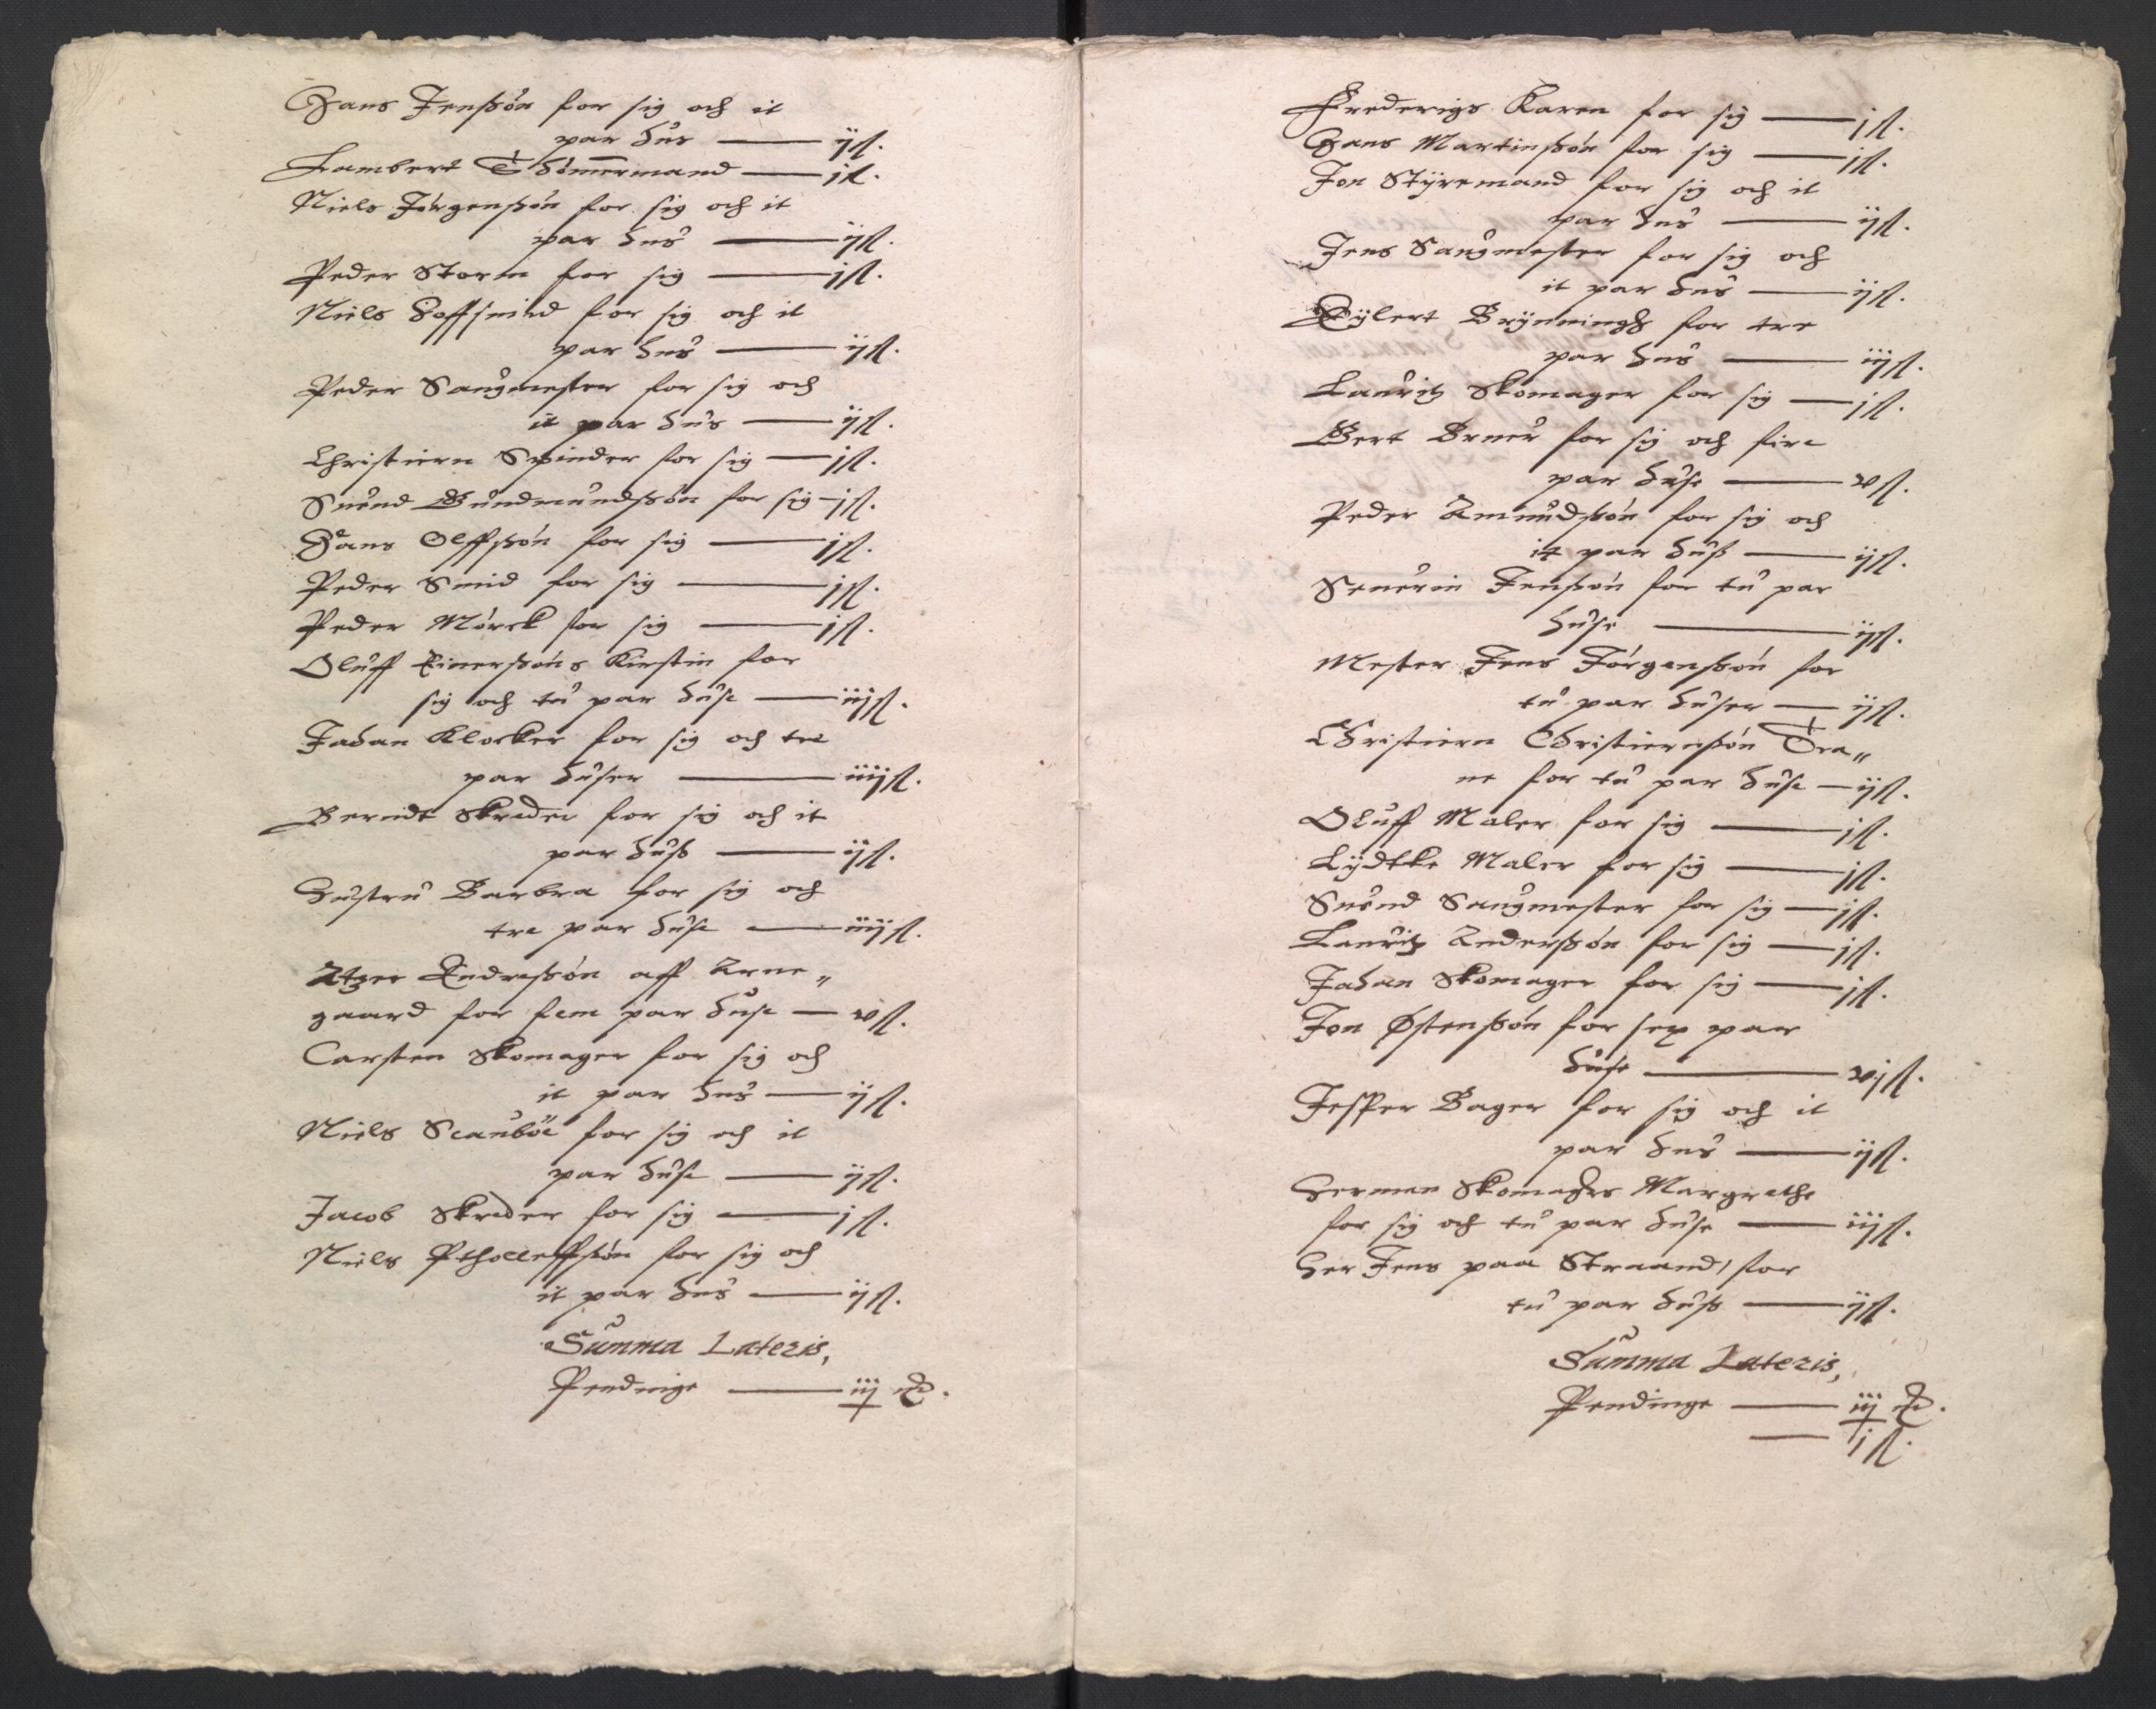 Hans Jenßøn for sig och it
par hus — ij ß.
Lambert Thømmermand — j ß.
Niels Jørgenßøn for sig och it
par hus — ij ß.
Peder Storm for sig — j ß.
Niels Hoffsmed for sig och it
par hus — ij ß.
Peder Sangmester for sig och
it par hus — ij ß.
Christiern Spinder for sig — j ß.
Suend Gundmundßøn for sig — j ß.
Hans Olffßøn for sig — j ß.
Peder Smid for sig — j ß.
Peder Mørck for sig — j ß.
Oluff Einerßøns Kirstin for
sig och tu par huse — iij ß.
Johan Klocker for sig och tre
par huser — iiij ß.
Berndt Skreder for sig och it
par huß — ij ß.
Hustru Barbra for sig och
tre par huse — iiij ß.
Atzer Andreßøn aff Arne„
gaard for fem par huse — v ß.
Carsten Skomager for sig och
it par hus — ij ß.
Niels for sig och it
par huse — ij ß.
Jacob Skreder for sig — j ß.
Niels for sig och
it par hus — ij ß.
Summa Lateris,
Pendinge — iij
Frederigs Karen for sig — j ß.
Hans Martinßøn for sig — j ß.
Jon Styremand for sig och it
par hus — ij ß.
Jens Sangmester for sig och
it par hus — ij ß.
Eylert Brynningh for tre
par hus — iij ß.
Lauritz Skomager for sig — j ß.
Gert for sig och fire
par huse — v ß.
Peder Amundßøn for sig och
it par huß — ij ß.
Seuerin Jenßøn for tu par
huse — ij ß.
Mester Jens Jørgenßøn for
tu par huser — ij ß.
Christiern Christiernßøn Tra„
ne for tu par huse — ij ß.
Oluff Maler for sig — j ß.
Lydtke Maler for sig — j ß.
Suend Sangmester for sig — j ß.
Lauritz Anderßøn for sig — j ß.
Johan Skomager for sig — j ß.
Jon Østenßøn for sex par
huse — vj ß.
Jesper Bager for sig och it
par hus — ij ß.
Herman Skomagers Margrethe
for sig och tu par huse — iij ß.
Her Jens paa Straand, for
tu par huß — ij ß.
Summa Lateris,
Pendinge — iij
— j ß.